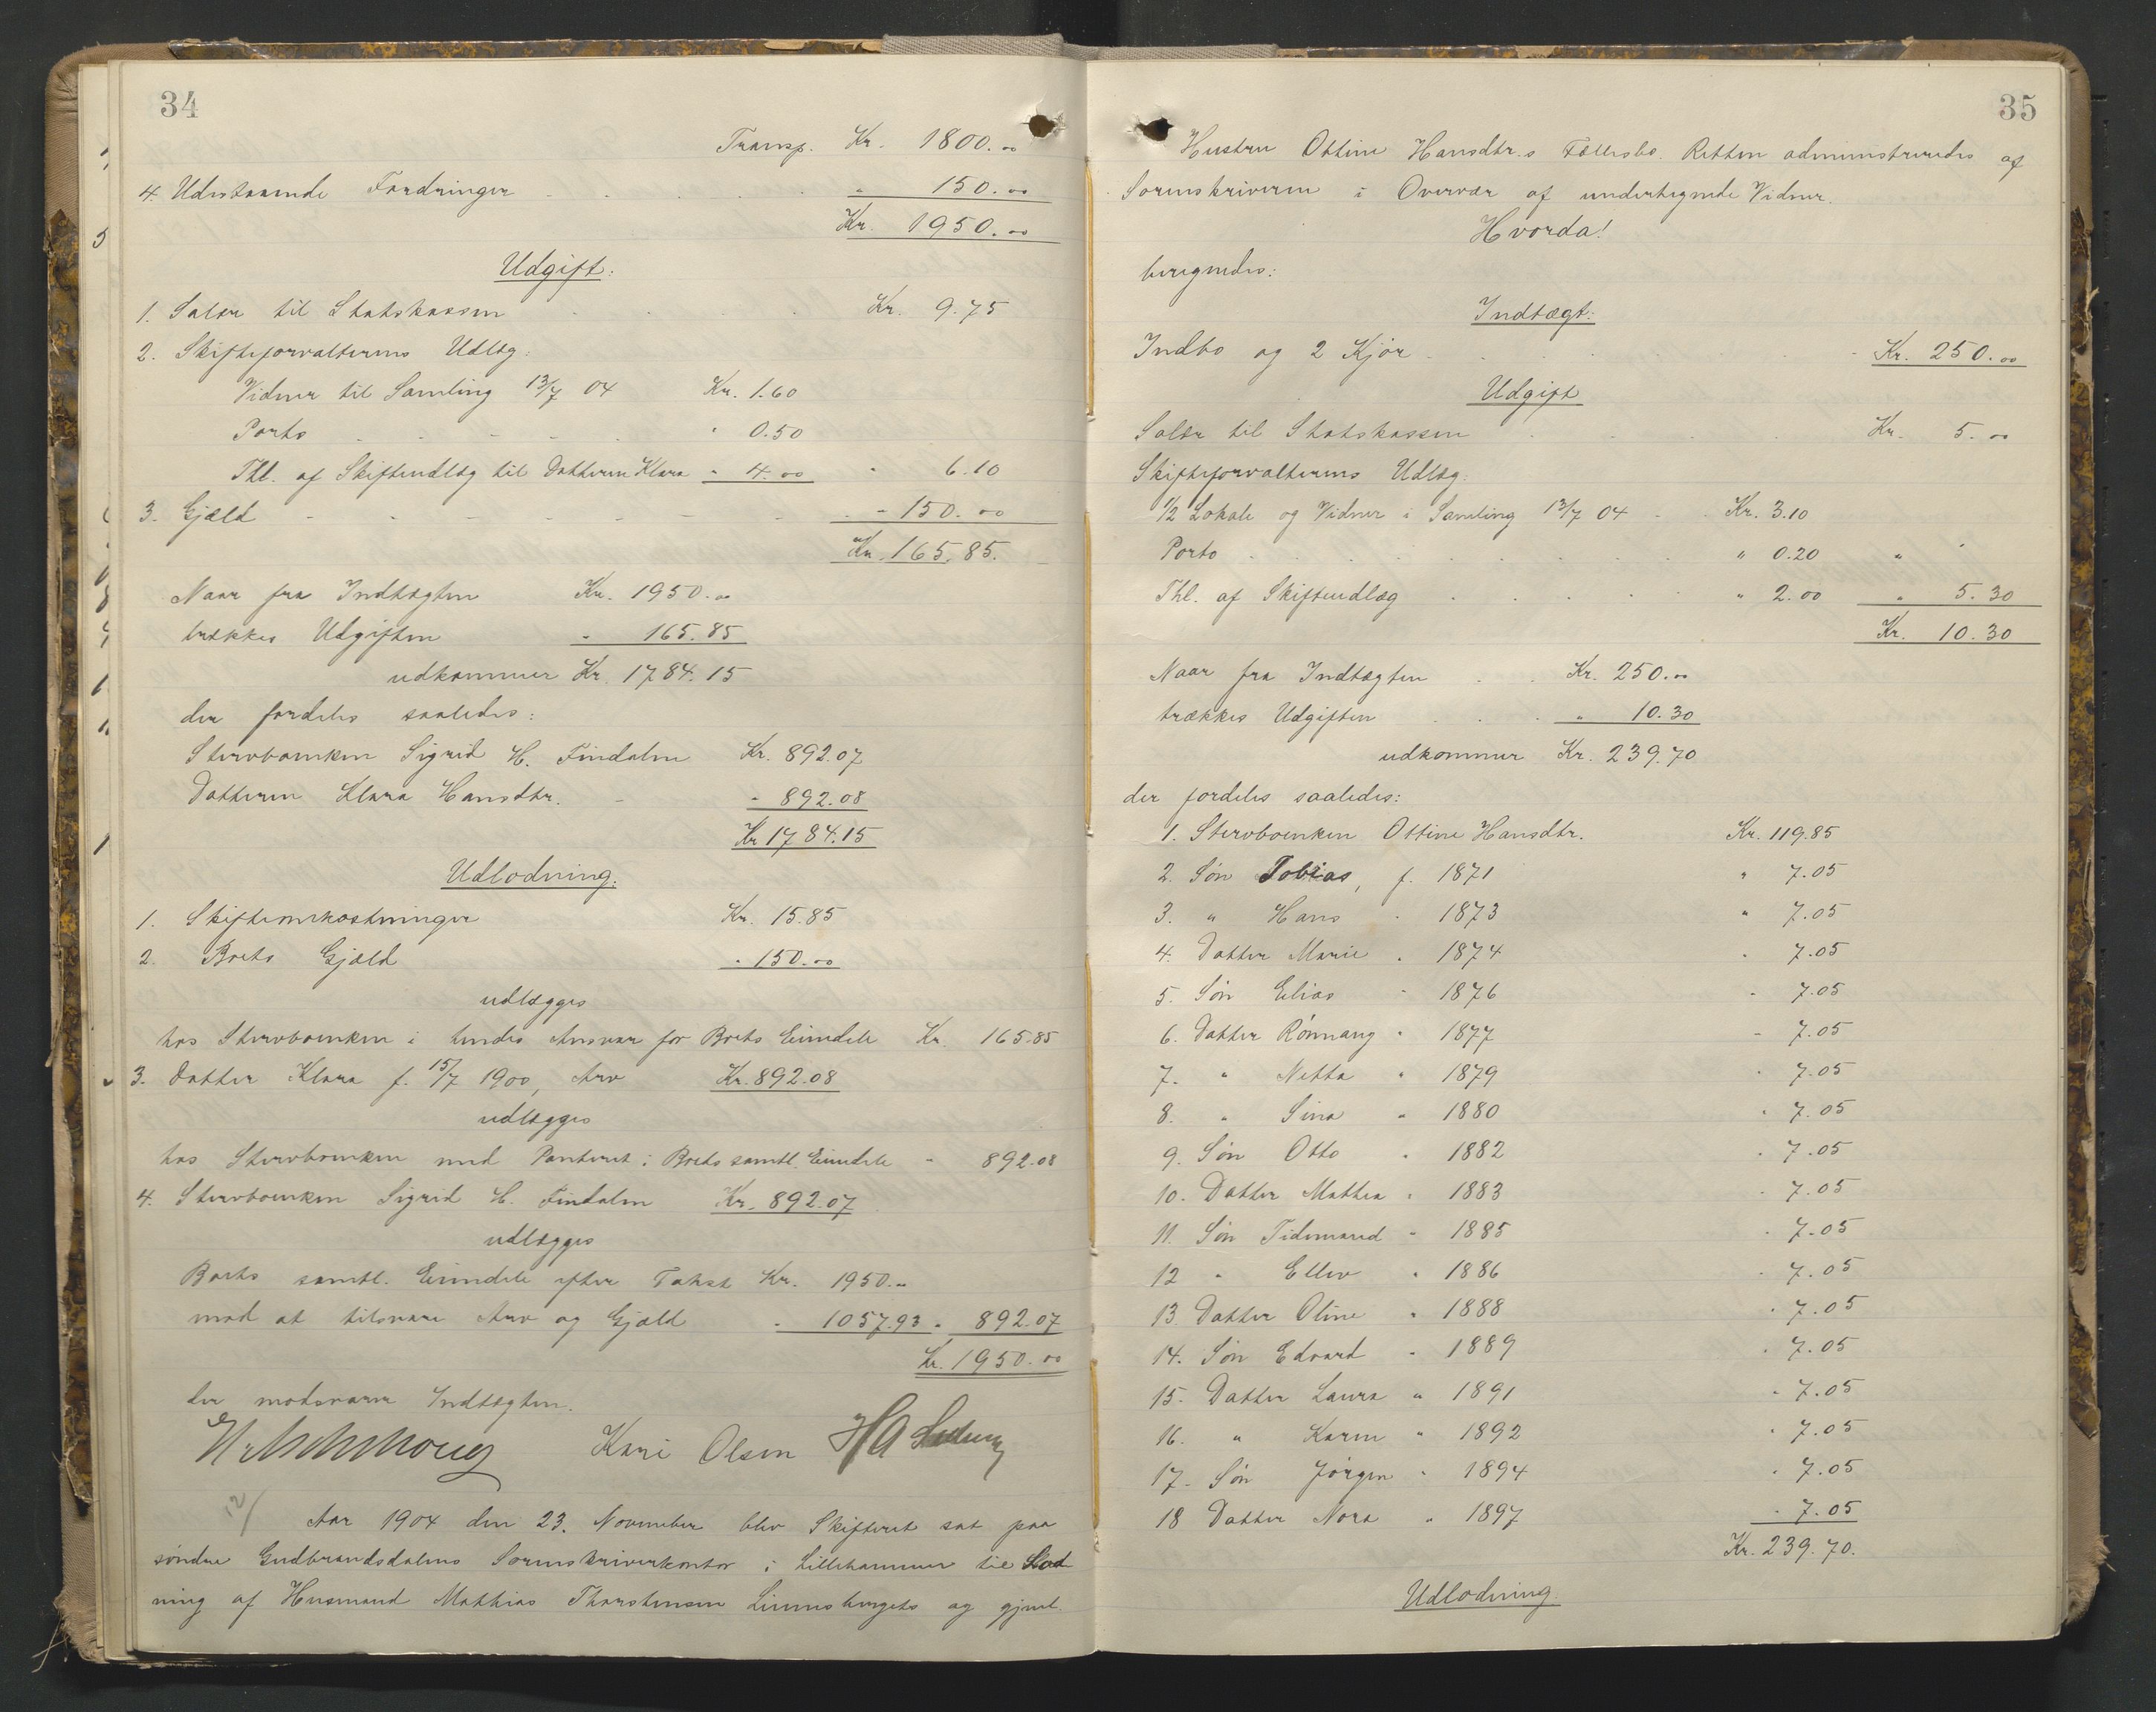 34
Transp. Kr. 1800.00
4. Udestaaende Fordringer " 150.00
Kr. 1950.00
Udgift:
1. Salær til Statskassen Kr. 9.75
2. Skifteforvalterens Udlæg:
Vidner til Samling 13/7 04 Kr. 1.60
Porto " 0.50
Thl. af Skifteudlæg til Datteren Klara " 4.00 " 6.10
3. Gjæld - 150.00
Kr. 165.85.
Naar fra Indtægten Kr. 1950.00
trækkes Udgiften " 165.85
udkommer Kr. 1784.15
der fordeles saaledes:
Stervboenken Sigrid H. Findalen Kr. 892.07
Datteren Klara Hansdtr. " 892.08
Kr 1784.15
Udlodning:
1. Skifteomkostninger Kr. 15.85
2. Boets Gjæld " 150.00
udlægges
hos Stervboenken i hendes Ansvar for Boets Eiendele Kr. 165.85
3. Datter Klara f. 15/7 1900, Arv Kr. 892.08
udlægges
hos Stervboenken med Panteret i Boets samtl. Eiendele " 892.08
4. Stervboenken Sigrid H. Findalen Kr. 892.07
udlægges
Boets samtl. Eiendele efter Takst Kr. 1950.00
mod at tilsvare Arv og Gjæld " 1057.93 " 892.07
Kr. 1950.00
der modsvarer Indtægten.
Kari Olsen
12/
Aar 1904 den 23. November blev Skifteret sat paa
søndre Gudbrandsdalens Sorenskriverkontor i Lillehammer til Slut
ning af Husmand Mathias Thorstensen Linnsbergets og gjenl.
35
Hustru Ottine Hansdtr.s Fællesbo. Retten administreredes af
Sorenskriveren i Overvær af undertegnede Vidner.
Hvorda!
beregnedes:
Indtægt:
Indbo og 2 Kjør Kr. 250.00
Udgift
Salær til Statskassen Kr. 5.00
Skifteforvalterens Udlæg:
1/2 Lokale og Vidner i Samling 13/7 04 Kr. 3.10
Porto " 0.20 "
Thl. af Skifteudlæg " 2.00 " 5.30
Kr. 10.30
Naar fra Indtægten Kr. 250.00
trækkes Udgiften " 10.30
udkommer Kr. 239.70
der fordeles saaledes:
1. Stervboenken Ottine Hansdtr. Kr. 119.85
2. Søn Tobias, f. 1871 " 7.05
3. " Hans " 1873 " 7.05
4. Datter Marie " 1874 " 7.05
5. Søn Elias " 1876 " 7.05
6. Datter Rønnaug " 1877 " 7.05
7. " Netta " 1879 " 7.05
8. " Sina " 1880 " 7.05
9. Søn Otto " 1882 " 7.05
10. Datter Mathea " 1883 " 7.05
11. Søn Tidemand " 1885 " 7.05
12 " Ellev " 1886 " 7.05
13. Datter Oline " 1888 " 7.05
14. Søn Edvard " 1889 " 7.05
15. Datter Laura " 1891 " 7.05
16. " Karen " 1892 " 7.05
17. Søn Jørgen " 1894 " 7.05
18 Datter Nora " 1897 " 7.05
Kr. 239.70.
Udlodning.